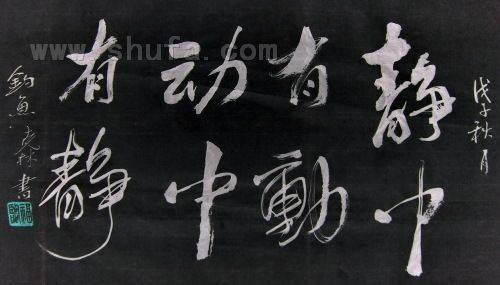 戊子秋月
静中
有動
动中
有静
釣魚克林書
www.shufa.com